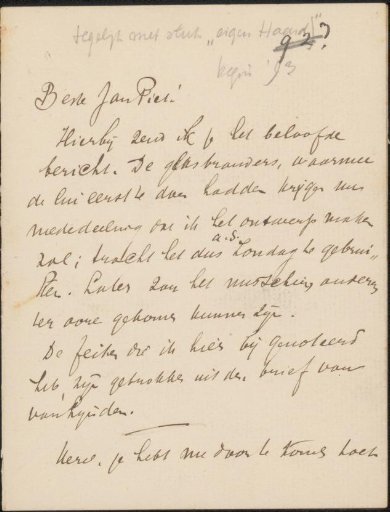 tegelijk met stuk "eigen Haard"
93?
begin '93
Beste Jan Piet!
Hierbij zend ik je het beloofde
bericht. De glasbranders, waarmee
de lui eerst te doen hadden krijgen nu
mededeeling dat ik het ontwerp maken
zal; tracht het dus a.s. Zondag te gebrui-
ken. Later zou het misschien anderen
ter oore gekomen kunnen zijn.
De feiten die ik hier bij genoteerd
heb zijn getrokken uit den brief van
van
Kerel, je hebt me door te komen